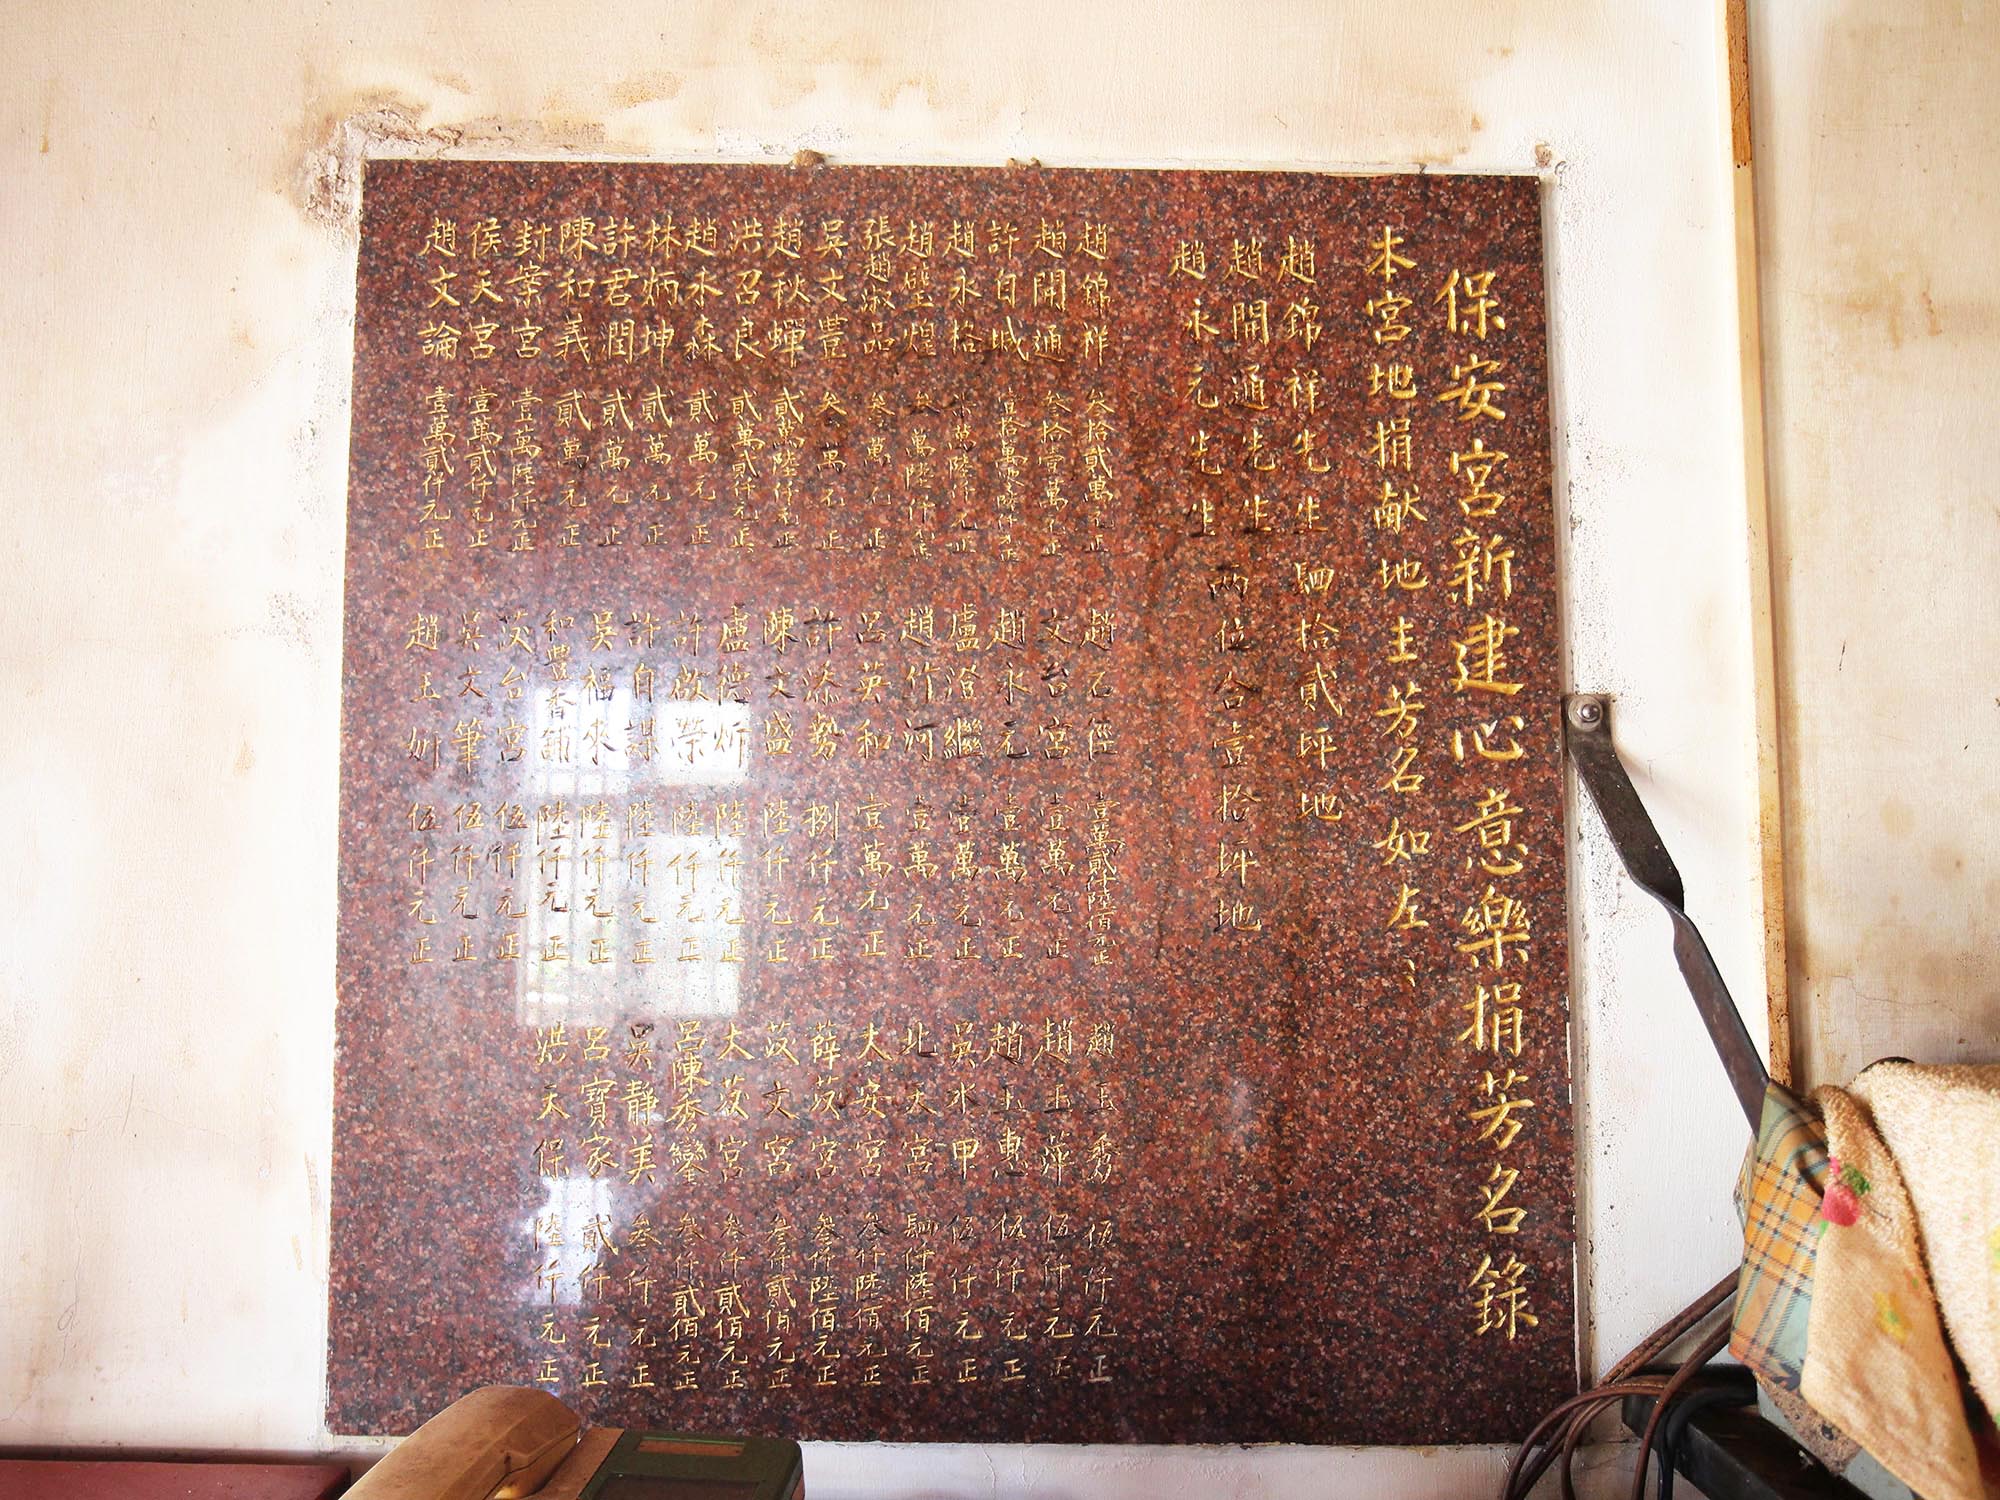 保安宮新建心意樂捐芳名錄
本宮地捐献地主芳名如左：
趙錦祥先生 肆拾貳坪地
趙開通先生
趙永元先生 两位合壹拾坪地
趙錦祥 叁拾貳萬元正
趙開通 叁拾壹萬元正
許自城
趙永格 萬陸仟元正
趙壁煌 叁萬陸仟元正
張趙淑品 叁萬元正
吳文豊 叁萬元正
趙秋蟬 貳萬陸仟元正
洪召良 貳萬貳仟元正
趙永森 貳萬元正
林炳坤 貳萬元正
許君潤 貳萬元正
陳和義 貳萬元正
封案宮 壹萬陸仟元正
侯天宮 壹萬貳仟元正
趙文論 壹萬貳仟元正
趙乙徑 壹萬貳仟陸佰元正
文台宮 壹萬元正
趙永元 壹萬元正
盧澄繼 壹萬元正
趙竹河 壹萬元正
呂英和 壹萬元正
許添勢 捌仟元正
陳文盛 陸仟元正
盧德炘 陸仟元正
許啟榮 陸仟元正
許自謀 陸仟元正
吳福來 陸仟元正
和豐香舖 陸仟元正
茂台宮 伍仟元正
吳文筆 伍仟元正
趙玉 伍仟元正
趙玉秀 伍仟元正
趙玉萍 伍仟元正
趙玉惠 伍仟元正
吳水甲 伍仟元正
北天宮 肆仟陸佰元正
大安宮 叁仟陸佰元正
薛茂宮 叁仟陸佰元正
茂文宮 叁仟貳佰元正
大茂宮 叁仟貳佰元正
呂陳秀鑾 叁仟貳佰元正
吳靜美 叁仟元正
呂寶家 貳仟元正
洪天保 陸仟元正